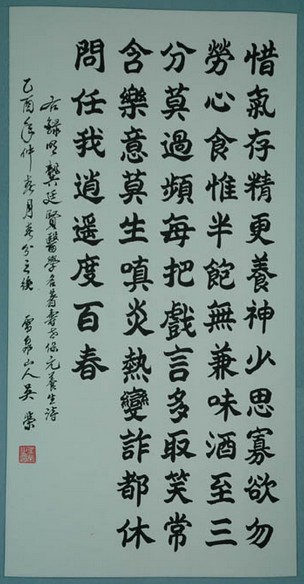 惜氣存精更養神少思寡欲勿
勞心食惟半飽無兼味酒至三
分莫過頻每把戲言多取笑常
含樂意莫生嗔炎熱變詐都休
問任我逍遥度百春
右錄明龔廷賢醫學名著壽世保元養生詩
乙酉年仲春月春分之後 雪泉山人吳榮